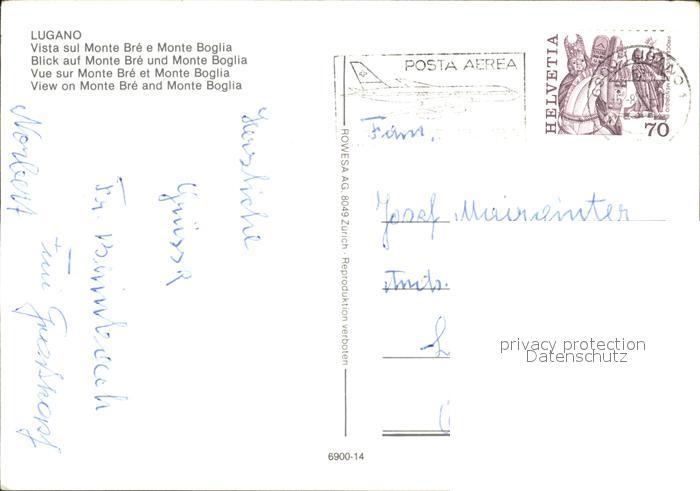 LUGANO
Vista sul Monte Bré e Monte Boglia
Blick auf Monte Bré und Monte Boglia
Vue sur Monte Bré et Monte Boglia
View on Monte Bré and Monte Boglia
Herzliche
Grüsse
Fr.
Norbert
POSTA AEREA
HELVETIA
70
ROWESA AG, 8049 Zürich - Reproduktion verboten
Fam.
Josef Mairginter
privacy protection
Datenschutz
6900-14